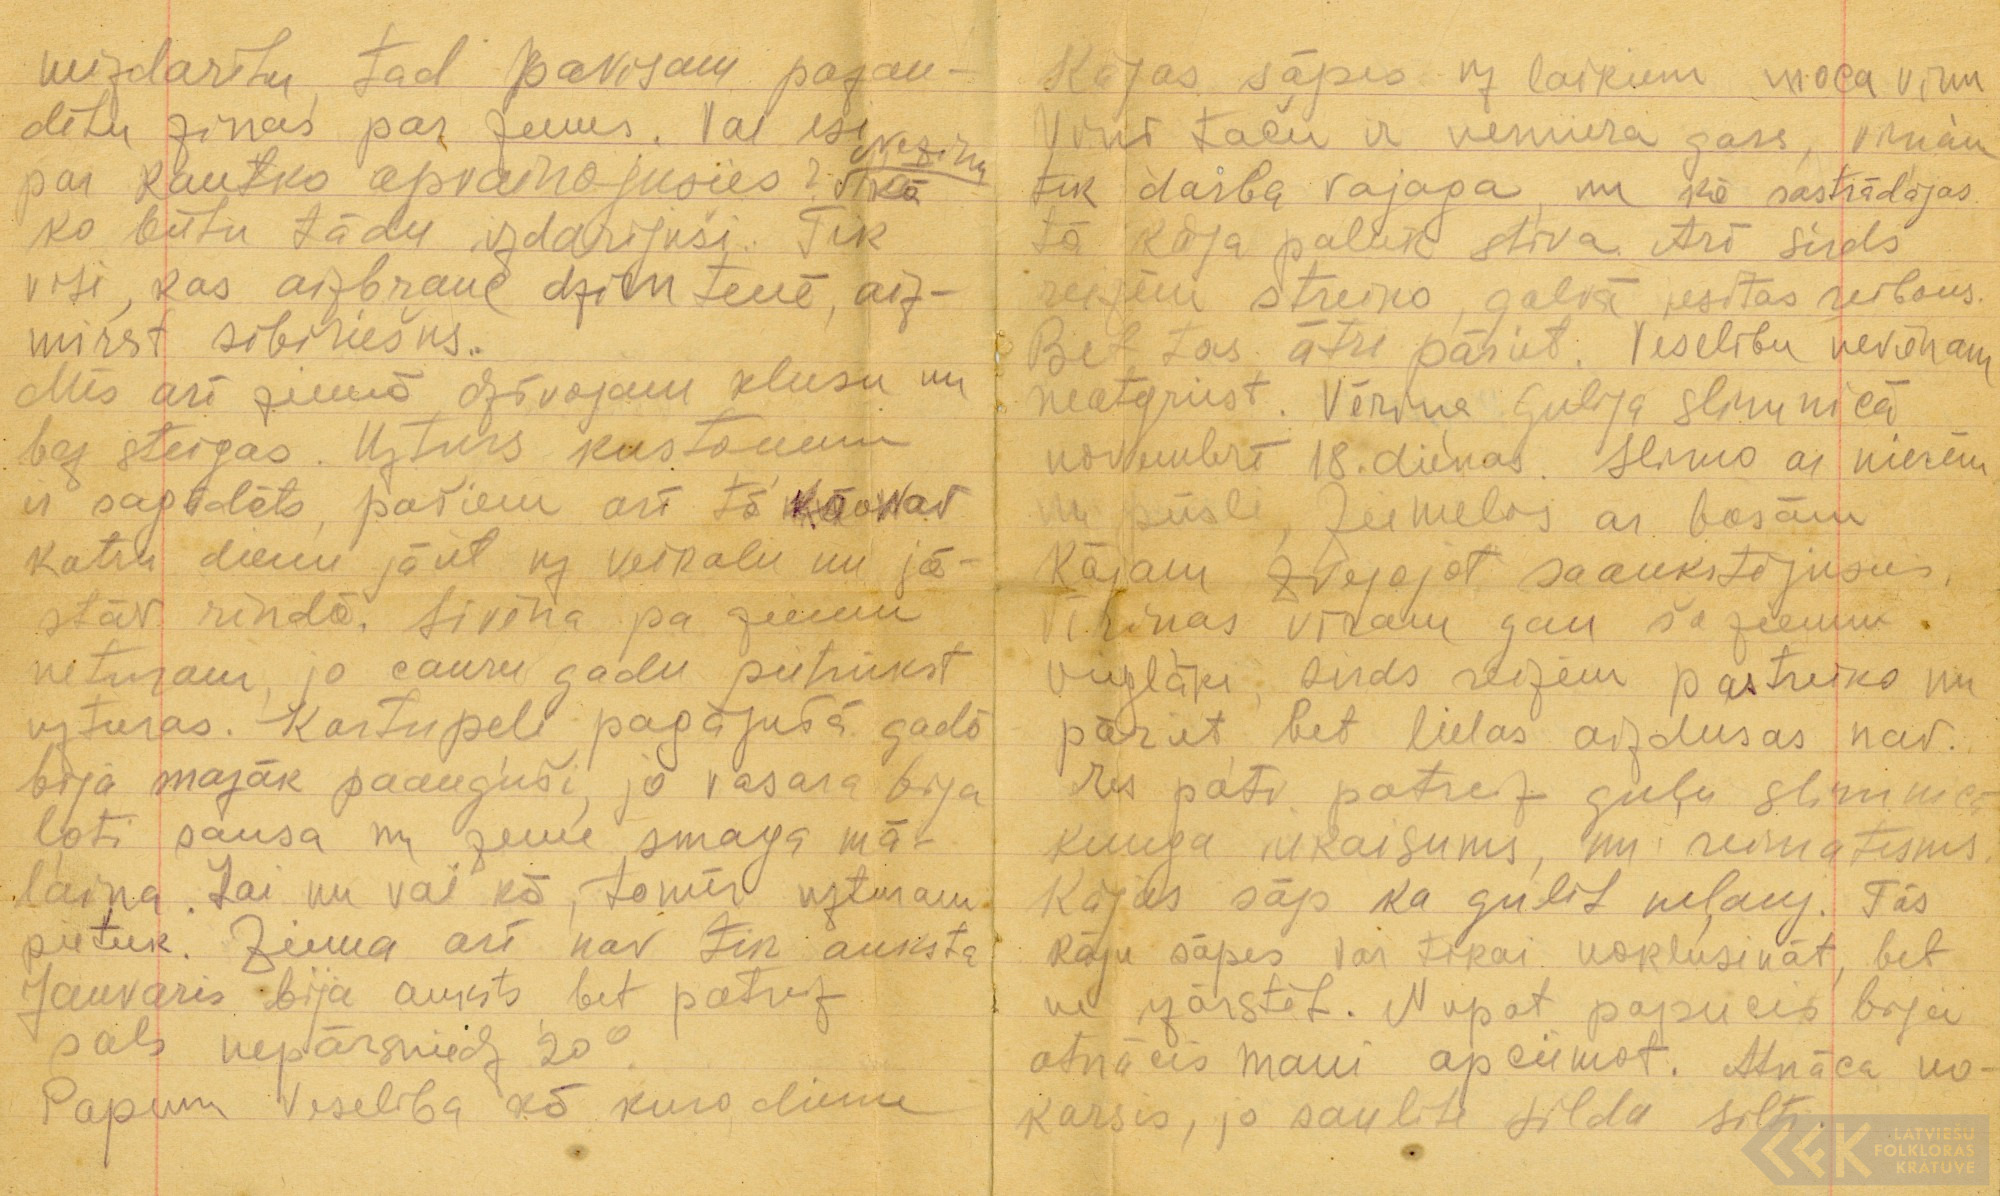 neizdarītu, tad pavisam pazau-
dētu ziņas par Jums. Vai esi
par kautko apvainojusies? nezinu
kā
ko būtu tādu izdarījuši. Tik
visi, kas aizbrauc dzimtenē, aiz-
mirst sibiriešus.
Mēs arī ziemā dzīvojam klusu un
bez steigas. Uzturs kustoņiem
ir sagādāts, pašiem arī tā kā nav
katru dienu jāiet uz veikalu un jā-
stāv rindā. Sivēna pa ziemu
neturam, jo cauru gadu pietrūkst
uzturas. Kartupeļi pagājušā gadā
bija mazāk paauguši, jo vasara bija
ļoti sausa un zeme smaga mā-
laina. Lai nu vai kā, tomēr uzturam
pietiek. Ziema arī nav tik auksta
Janvāris bija auksts, bet patreiz
sals nepārsniedz 20°.
Papum veselība kā kuro dienu
Kājas sāpes uz laikiem moca viņu
Viņš taču ir nemiera gars, viņam
tik darba vajaga, un kā sastrādājas
tā kāja paliek stīva. Arī sirds
reizēm streiko, galvā iesitas reibons.
Bet tas ātri pāriet. Veselību nevaram
neatgriezt. Vēriņa gulēja slimnīcā
novembrī 18. dienas. Slimo ar nierēm
un pūsli, Ziemeļos ar basām
Kājam zvejojot saaukstējusies.
Vēriņas vīram gan šo ziemu
vieglāki, sirds reizēm pastreiko un
pāriet, bet lielas aizdusas nav.
Es pati patreiz guļu slimnīcā
kuņģa iekaisums, un reimatisms.
Kājas sāp ka gulēt neļauj. Tās
kāju sāpes var tikai noklusināt, bet
ne izārstēt. Nupat papucis bija
atnācis mani apciemot. Atnāca no-
karsis, jo saulīte silda silti.
LATVIEŠU
FOLKLORAS
KRATUVE